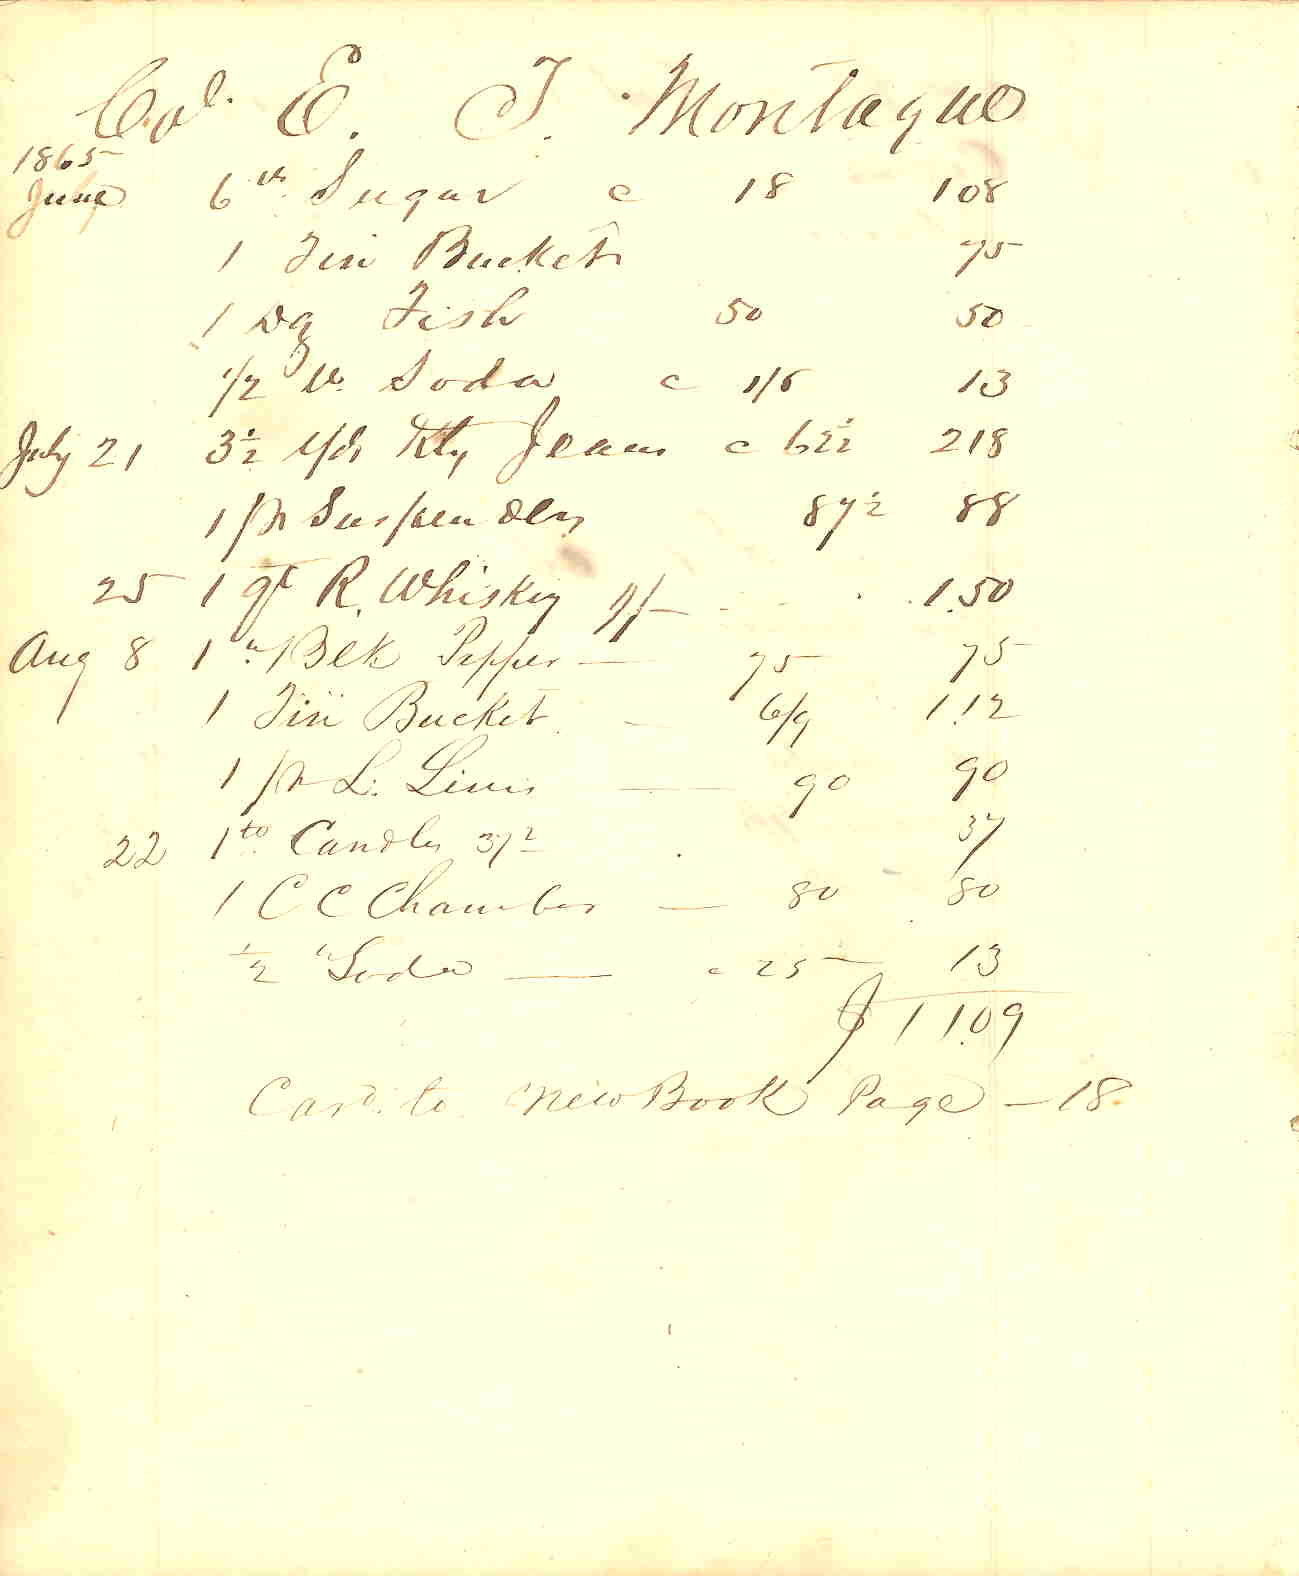 Col. E. T. Montague
1865
June 6 lb Sugar c 18 108
1 Tin Bucket 75
1 Dz Fish 50 50
1/2 lb. Soda c 1/6 13
July 21 3 1/2 yds Kty Jeans c 62 1/2 218
1 pr Suspenders 87 1/2 88
25 1 qt R. Whiskey 9/- 1.50
Aug 8 1 " Blk Pepper — 75 75
1 Tin Bucket — 6/9 1.12
1 pr L. Lines — 90 90
22 1 lb Candles 37 1/2 37
1 C C Chamber — 80 80
1/2 " Soda — c 25 13
$ 11.09
Card. to New Book Page — 18